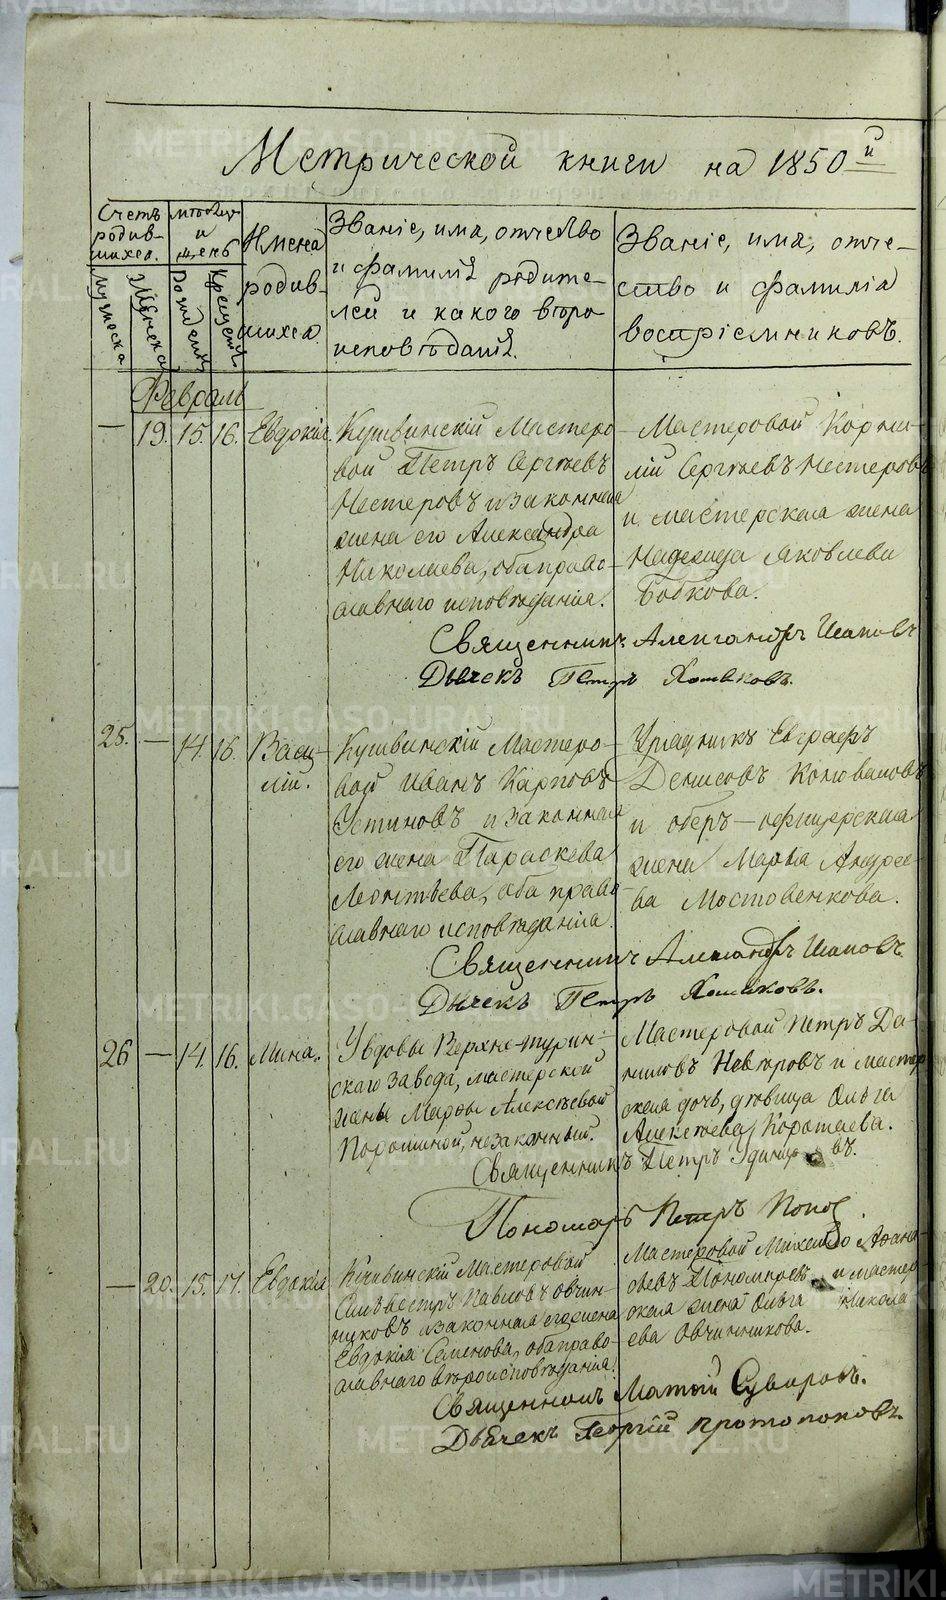 Метрической книги на 1850 й
Счетъ родив- шихся.
Мѣсяцъ и день
Имена родив- шихся
Званіе, имя, отчество
и фамилія родите-
лей и какого вѣро-
исповѣданія.
Званіе, имя, отче-
ство и фамилія
воспріемниковъ.
Мужеска
Женска
Рожденія
Крещенія
Февраль
— 19. 15. 16. Евдокія.
Кушвинскій Мастеро-
вой Петръ Сергѣевъ
Нестеровъ и законная
жена его Александра
Николаева, оба право-
славнаго исповѣданія.
Мастеровой Корни-
лій Сергѣевъ Нестеровъ
и мастерская жена
Надежда Яковлева
Бобкова.
Священникъ Александръ
Дьячекъ Петръ Хомяковъ.
25. — 14. 16. Васи-
лій.
Кушвинскій Мастеро-
вой Иванъ Карповъ
Устиновъ и законная
его жена Параскева
Леонтьева, оба право-
славнаго исповѣданія.
Урядникъ Евграфъ
Денисовъ Коноваловъ
и оберъ-офицерская
жена Марья Андрее-
ва Мостовенкова.
Священникъ Александръ
Дьячекъ Петръ Хомяковъ.
26 — 14. 16. Мина.
У вдовы Верхне-турин-
скаго завода, мастерской
жены Марѳы Алексѣевой
Порошиной, незаконный.
Мастеровой Петръ Да-
ниловъ и мастер-
ская дочь, дѣвица Ольга
Алексѣева Коротаева.
Священникъ Петръ
Пономарь Петръ Поповъ.
— 20. 15. 17. Евдокія
Кушвинскій Мастеровой
Сильвестръ Павловъ Овчин-
никовъ и законная его жена
Евдокія Семенова, оба право-
славнаго вѣроисповѣданія.
Мастеровой Михайло Аѳана-
сьевъ и мастер-
ская жена Ольга Никола-
ева Овчинникова.
Священникъ Матѳій Суворовъ.
Дьячекъ Георгій Протопоповъ.
METRIKI.GASO-URAL.RU